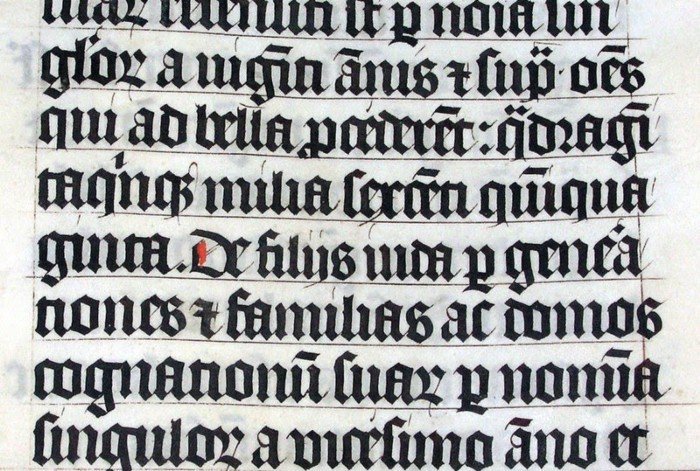 suaꝝ recensiti sūt ꝑ noīa sin
gl'oꝝ a uigīti ānis ⁊ sup̄ · oēs
qui ad bella ꝓcederēt: q̄dragī
taqⁱnqꝫ milia sexcēti qūiqua
ginta. De filijs iuda ꝑ gene͛a
tiones ⁊ familias ac domos
cognationū suaꝝ ꝑ nomīa
singuloꝝ a vicesimo āno et